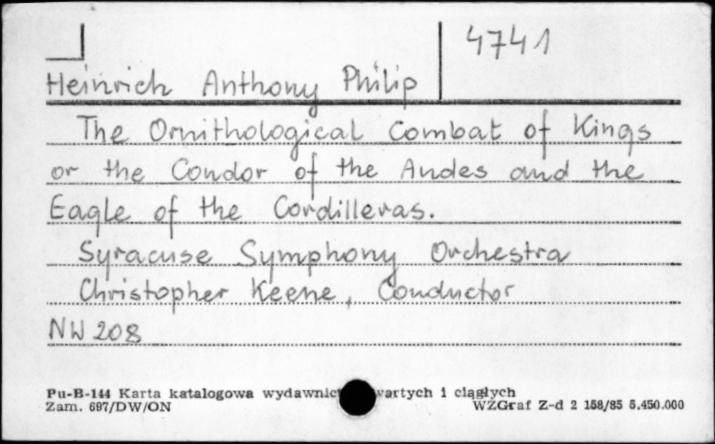 4741
Heinrich Anthony Philip
The Ornithological Combat of Kings
or the Condor of the Andes and the
Eagle of the Cordilleras.
Syracuse Symphony Orchestra
Christopher Keene, Conductor
NW 208
Pu-B-144 Karta katalogowa wydawnic wartych i ciągłych
Zam. 697/DW/ON WZGraf Z-d 2 158/85 5.450.000